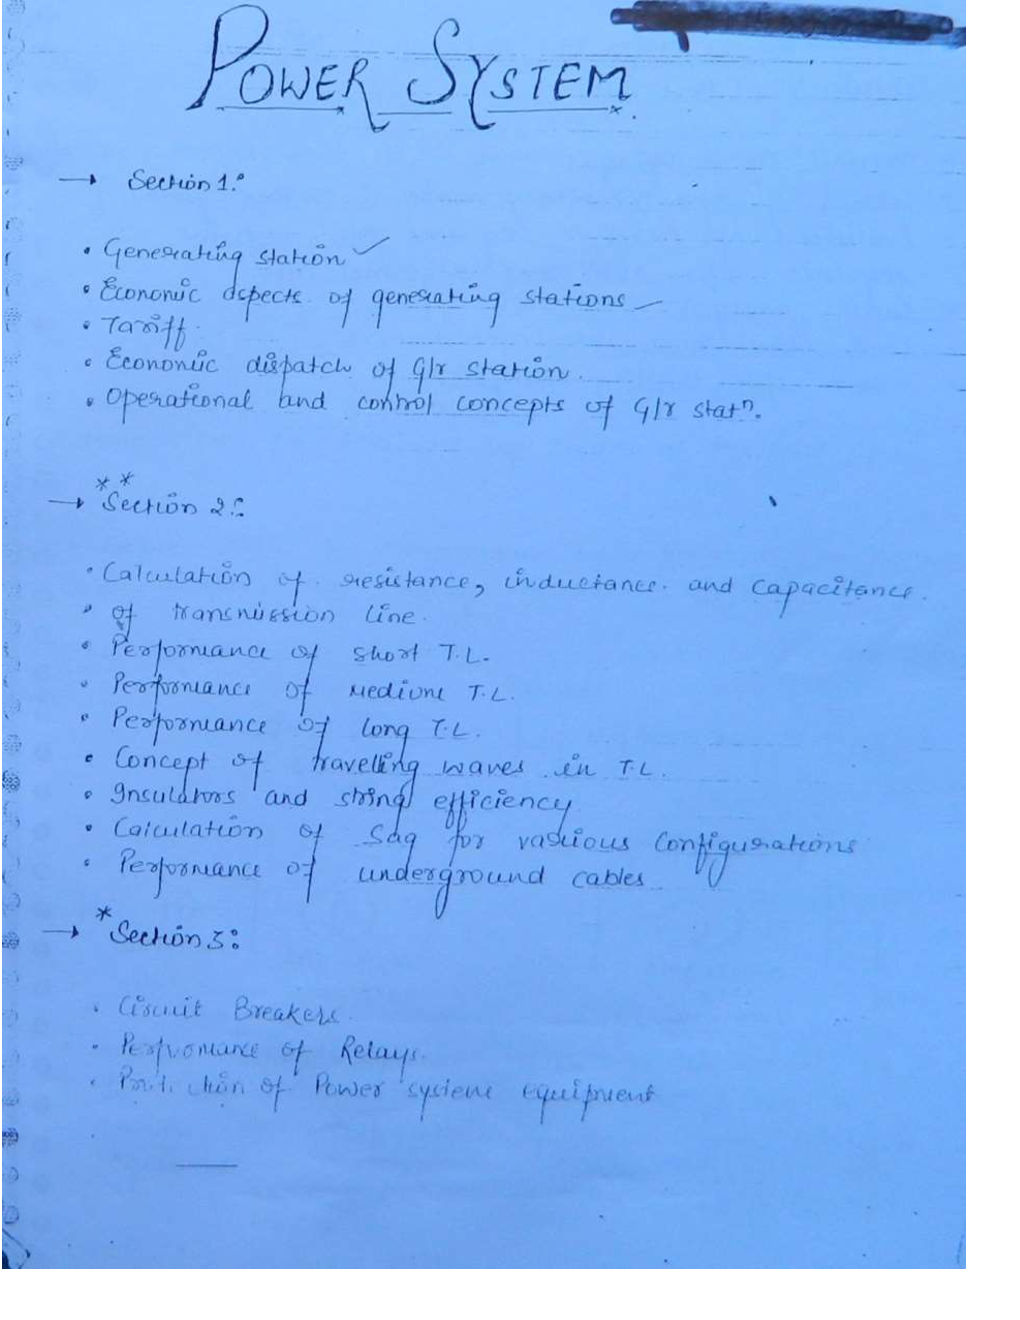 POWER SYSTEM.
→ Section 1:
• Generating station ✓
• Economic aspects of generating stations
• Tariff.
• Economic dispatch of G/r station.
• Operational and control concepts of G/r statn.
**
→ Section 2:
• Calculation of resistance, inductance and capacitance.
• of transmission line.
• Performance of short T.L.
• Performance of Medium T.L.
• Performance of long T.L.
• Concept of travelling waves in T.L.
• Insulators and string efficiency
• Calculation of Sag for various configurations
• Performance of underground cables
*
→ Section 3:
• Circuit Breakers.
• Performance of Relays.
• Protection of Power system equipment